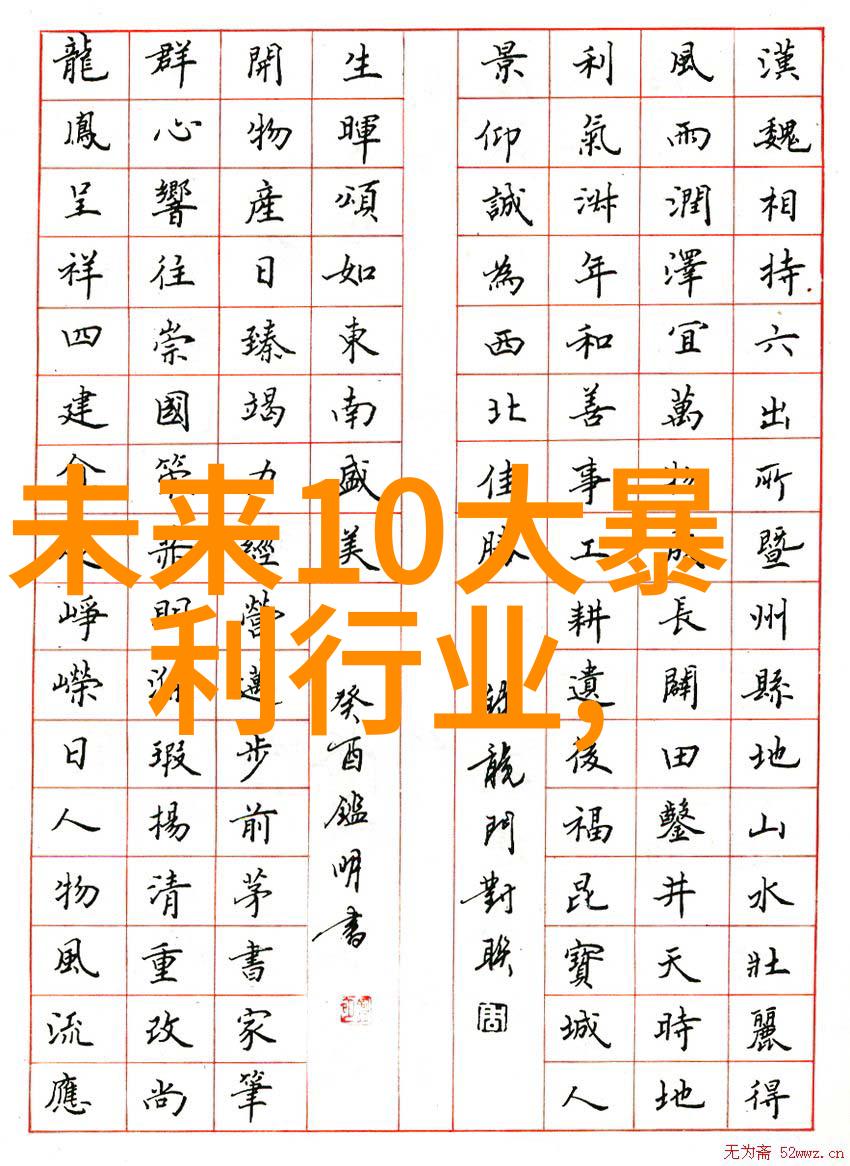 未来10大暴
利行业,
漢魏相持六出所暨州縣地山水壯麗得
風雨潤澤宜萬物成長闢田鑿井天時地
利氣淑年和善事工耕遺後福昆寶城人
景仰誠為西北佳勝
龍門對聯
生暉頌如東南盛美
癸酉鑑明書
開物產日臻竭力經營邁步前茅書家筆
群心響往崇國策亦明瑕揚清重改尚
龍鳳呈祥四建崢嶸日人物風流應
无为斋 52wwz.cn